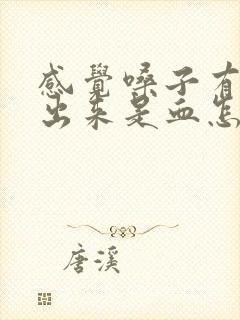 感覺嗓子有
出來是血怎
唐溪